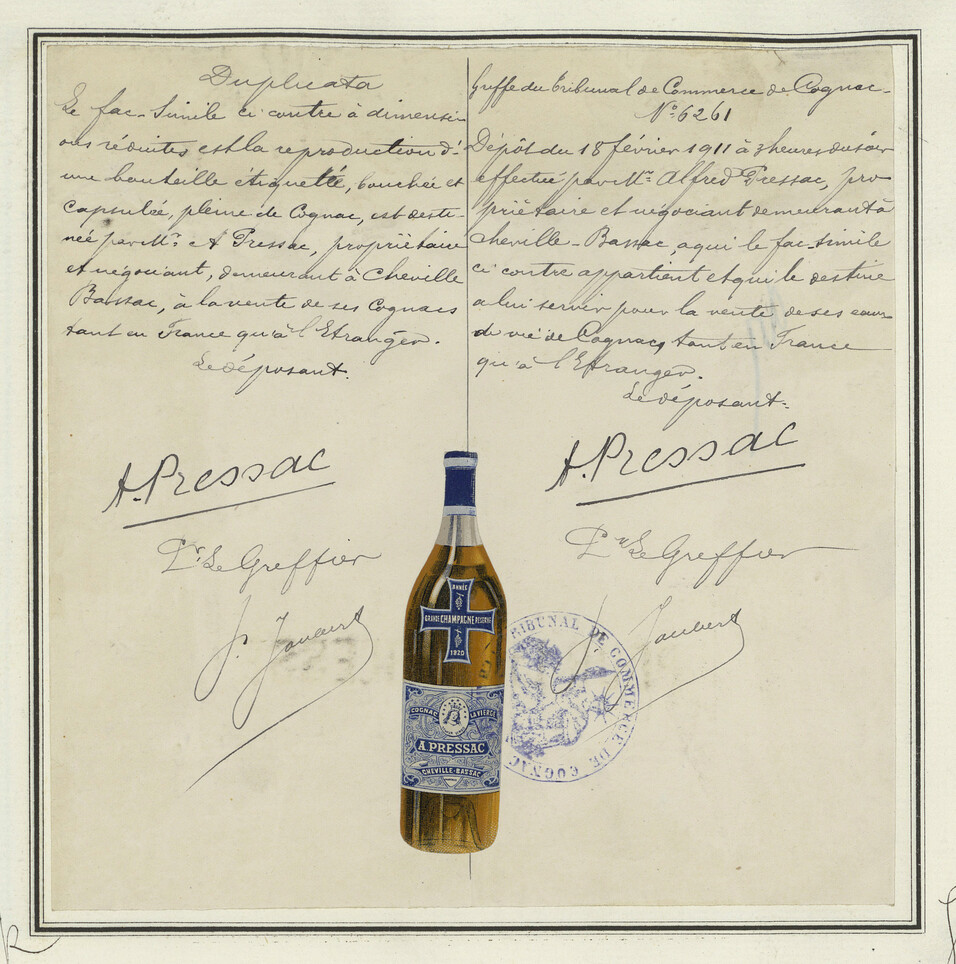 Duplicata
Le fac-Simile ci contre à dimensi-
ons réduites est la reproduction d'-
une bouteille étiquettée, bouchée et
capsulée, pleine de Cognac, est desti-
née par Mr. A Pressac, propriétaire
et négociant, demeurant à Cheville
Bassac, à la vente de ses Cognacs
tant en France qu'à l'Etranger.
Le déposant.
A. Pressac
Pr. Le Greffier
J. Joubert
Greffe du Tribunal de Commerce de Cognac-
No. 6261
Dépôt du 18 février 1911 à 3 heures du soir
effectué par Mr. Alfred Pressac, pro
priétaire et négociant demeurant à
Cheville-Bassac, a qui le fac-simile
ci contre appartient et qui le destine
a lui servir pour la vente de ses eaux-
de vie de Cognac, tant en France
qu'à l'Etranger.
Le déposant.
A. Pressac
Pr Le Greffier
J. Joubert
ANNÉE
GRANDE CHAMPAGNE RESERVE
1820
COGNAC LA VIERGE
A. PRESSAC
CHEVILLE-BASSAC
TRIBUNAL DE COMMERCE DE COGNAC